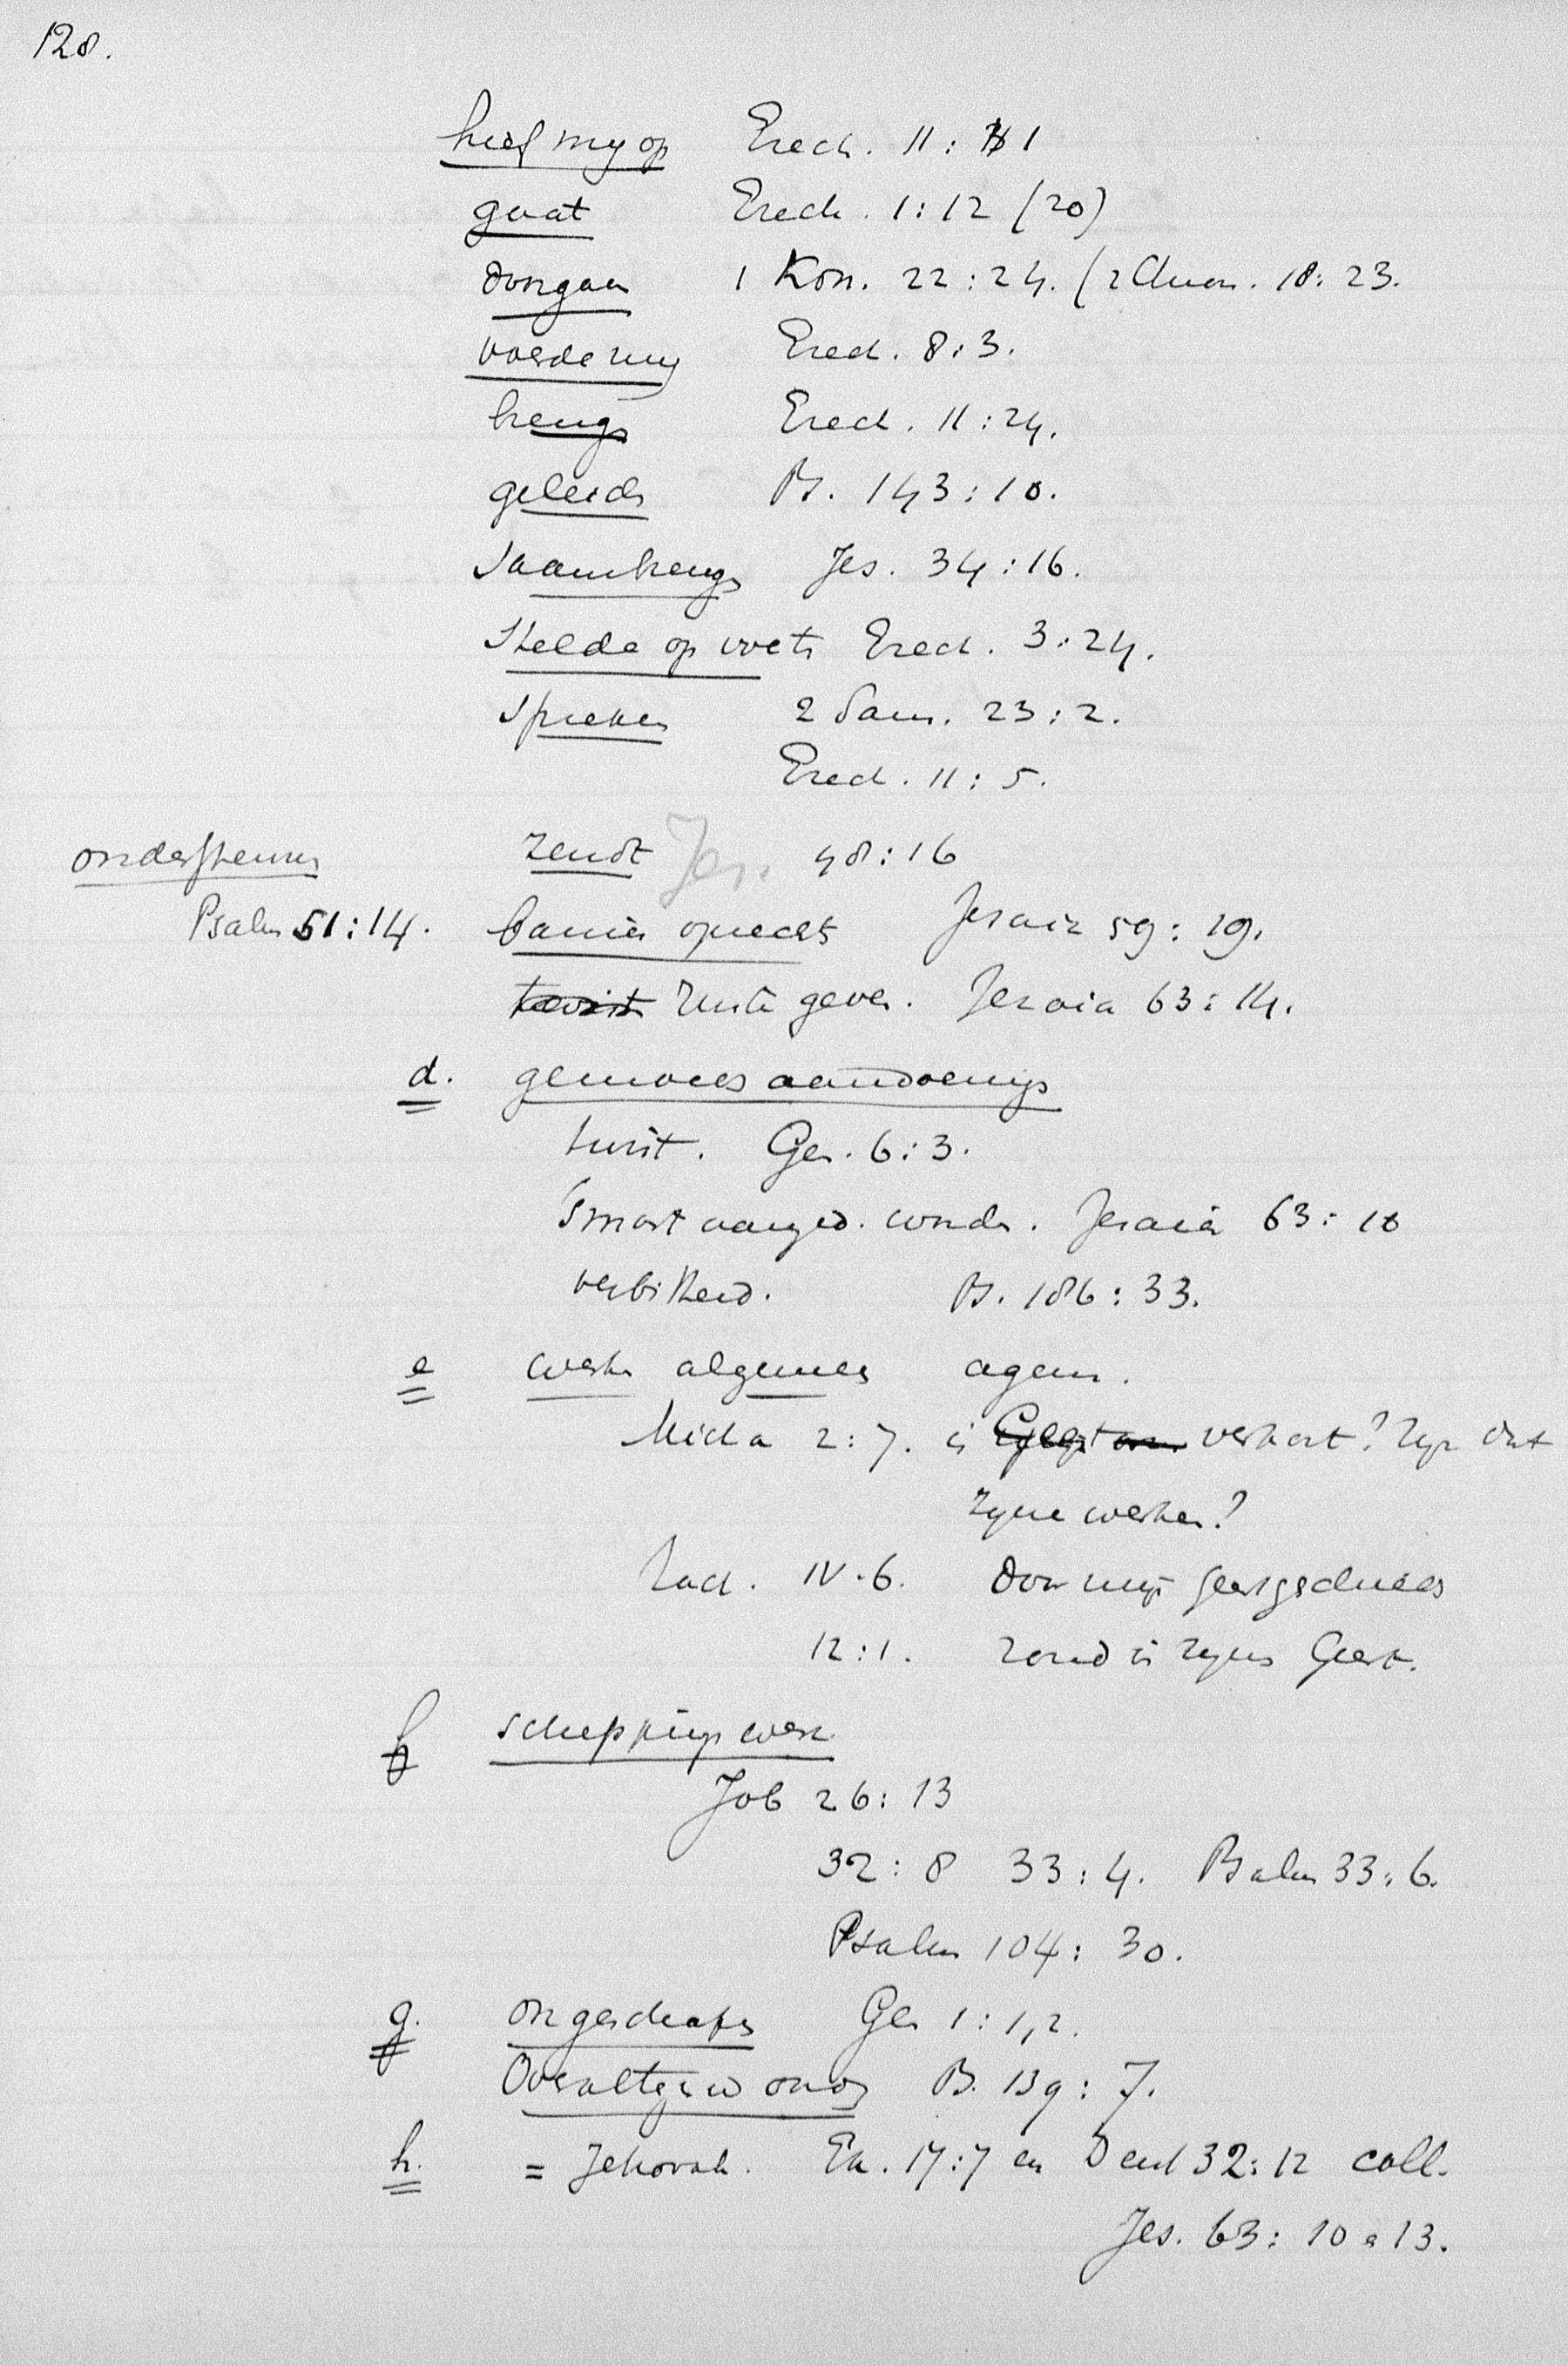 128.
hief my op Ezech. 11: 1
gaat Ezech. 1:12 (20)
doorgaan 1 Kon. 22:24. (2 Chron. 18:23.
voerde my Ezech. 8:3.
breng Ezech. 11:24.
geleide Ps. 143:10.
saambreng Jes. 34:16.
stelde op voete Ezech. 3:24.
spreken 2 Sam. 23:2.
Ezech. 11:5.
ondersteune zendt Jes. 48:16
Psalm 51:14. banier oprecht Jesaia 59:19.
twist ruste geven. Jesaia 63:14.
d. gemoedsaandoening
twist. Gen. 6:3.
Smart aanged. worde. Jesaia 63:10
verbitterd. Ps. 106:33.
e werk algemeen agens.
Micha 2:7. is verkort? Zijn dat
zyne werken?
Zach. IV.6. door mijn Geest geschieden
12:1. Geest.
f scheppingswerk
Job 26:13
32:8 33:4. Psalm 33:6.
Psalm 104:30.
g. ongeschapen Gen 1:1,2.
Overaltegenwoordig Ps. 139:7.
h. = Jehovah. Ex. 17:7 en Deut 32:12 coll.
Jes. 63:10 a 13.